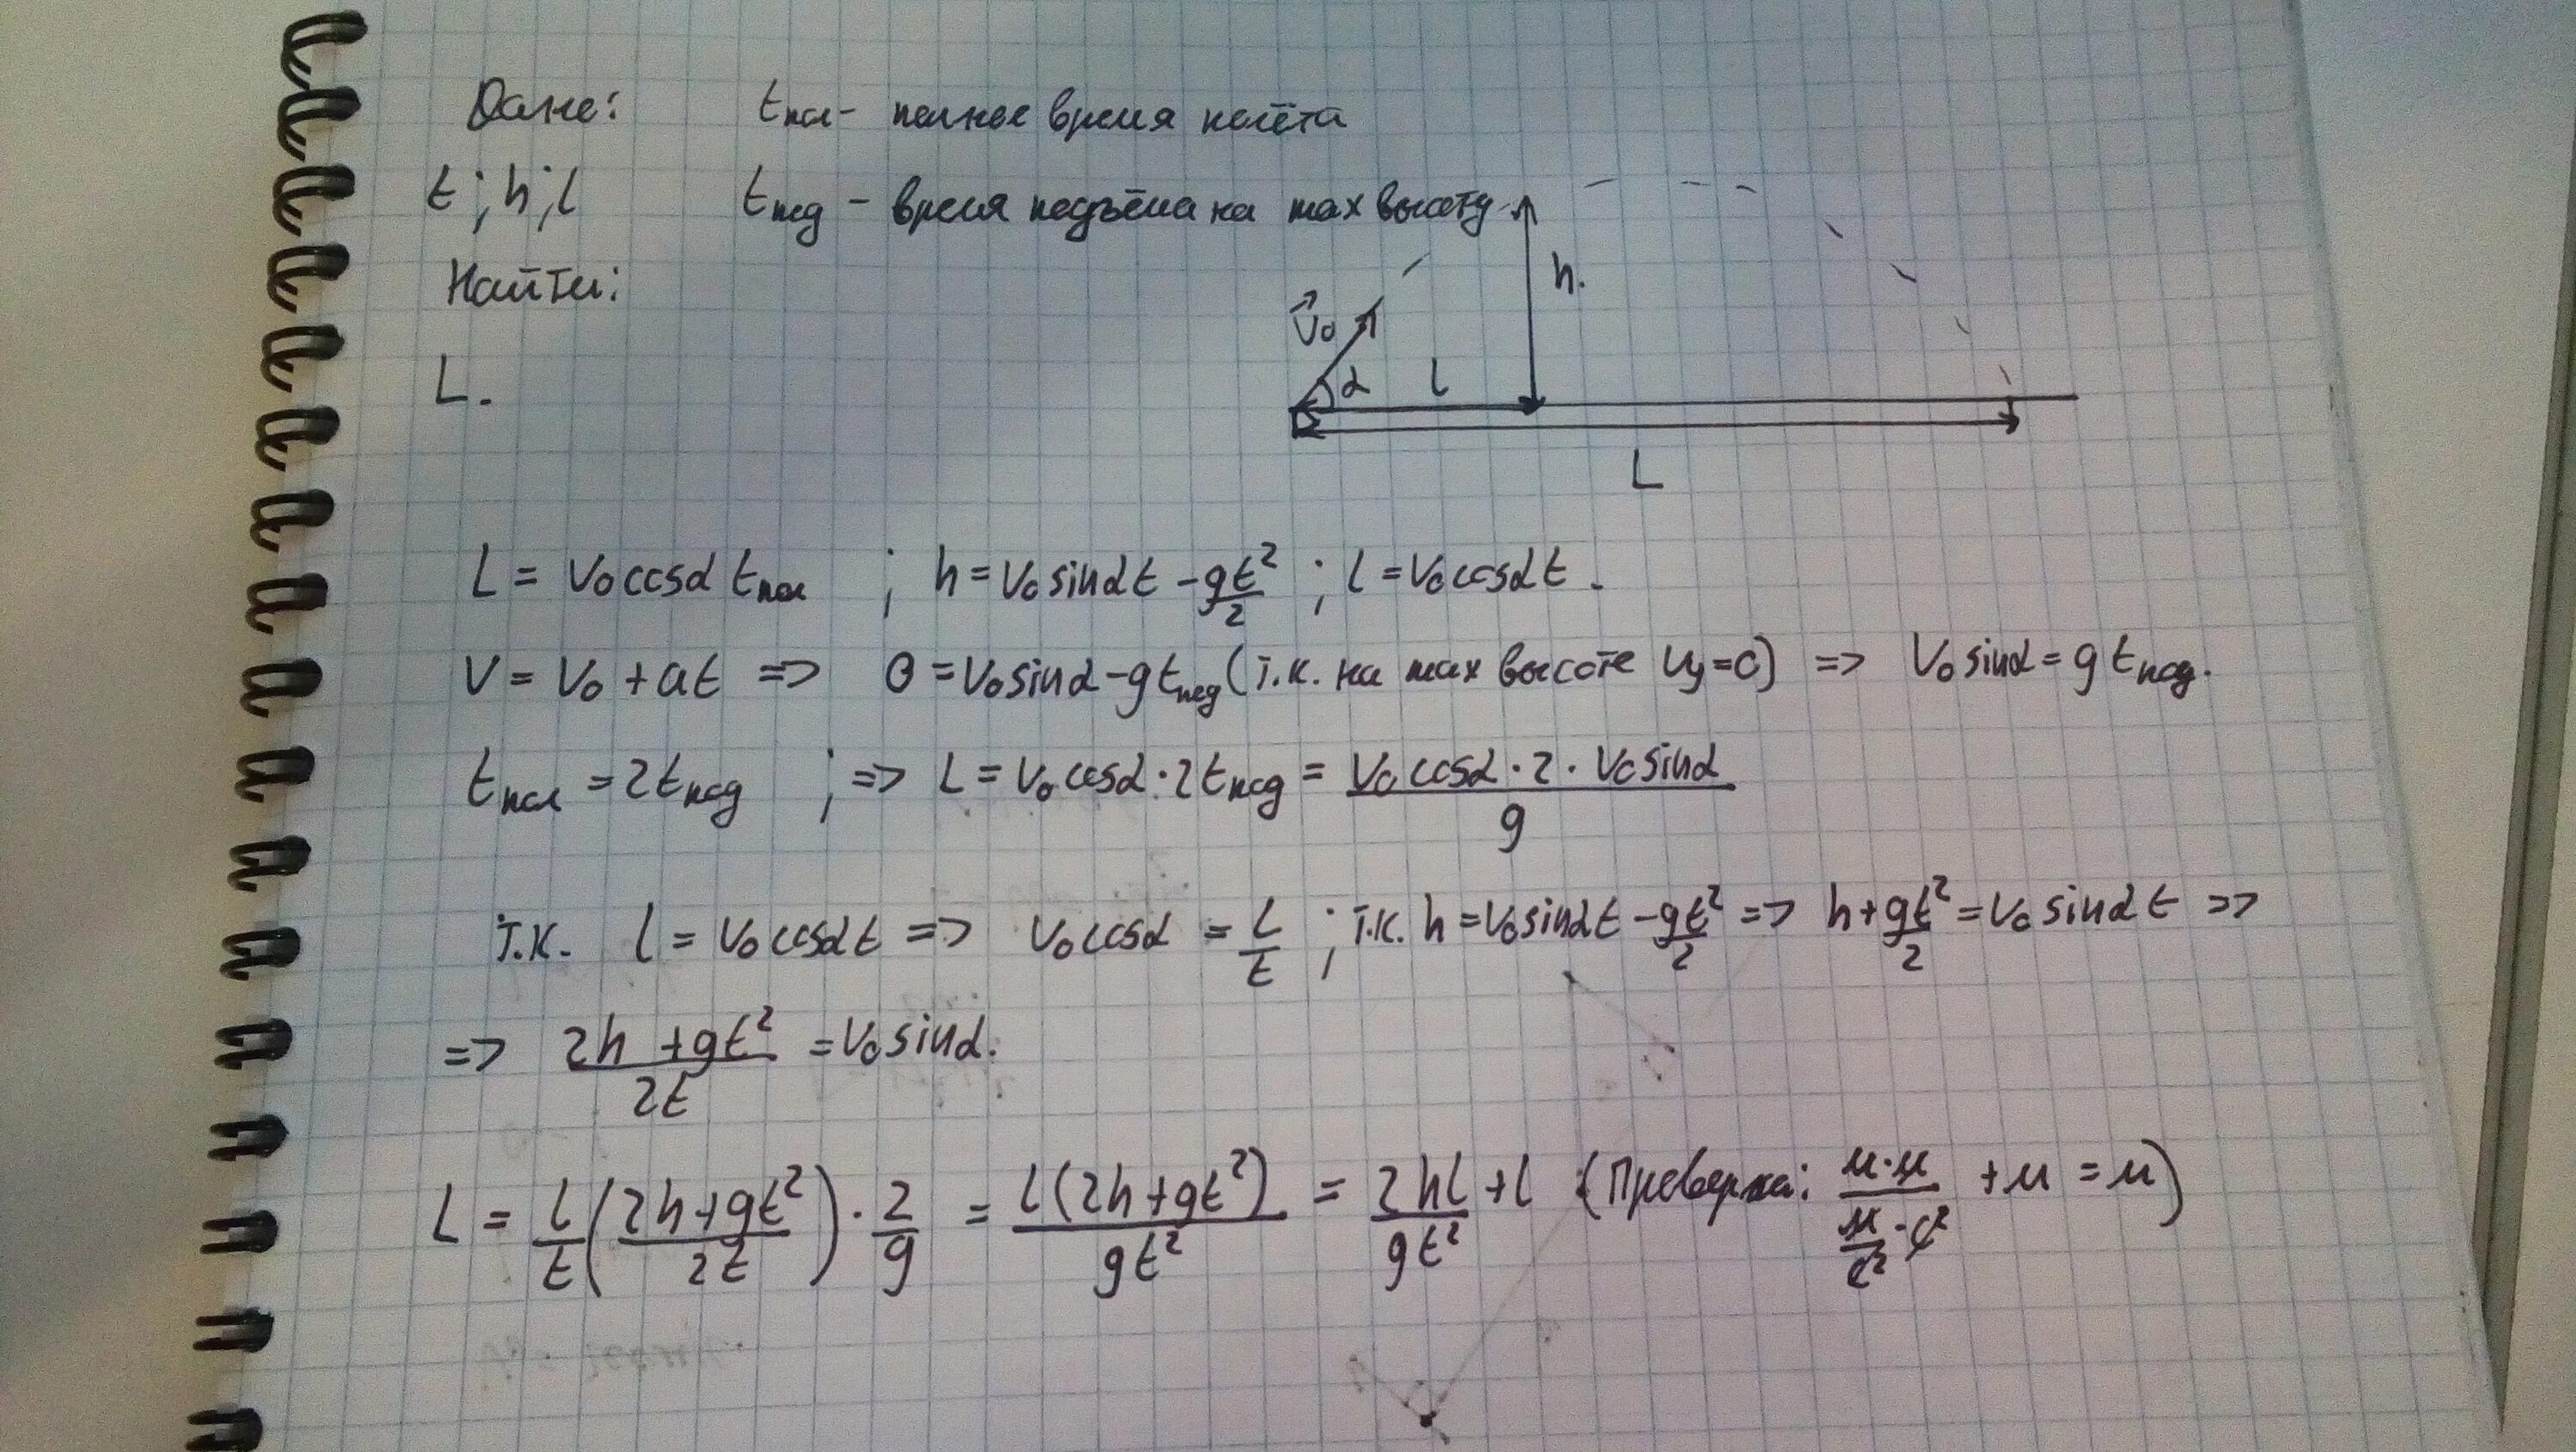 Дано: tпол - полное время полёта
t; h; l tпод - время подъёма на max высоту
Найти:
L.
h.
V⃗0
α l
L
L = V0 cosα tпол ; h = V0 sinα t - gt²/2 ; l = V0 cosα t.
V = V0 + at => 0 = V0 sinα - g tпод (т.к. на max высоте Vy = 0) => V0 sinα = g tпод.
tпол = 2tпод ; => L = V0 cosα · 2tпод = V0 cosα · 2 · V0 sinα / g
т.к. l = V0 cosα t => V0 cosα = l/t ; т.к. h = V0 sinα t - gt²/2 => h + gt²/2 = V0 sinα t =>
=> (2h + gt²)/2t = V0 sinα.
L = l/t ((2h + gt²)/2t) · 2/g = l(2h + gt²)/gt² = 2hl/gt² + l (Проверка: м·м/(м/с² · с²) + м = м)